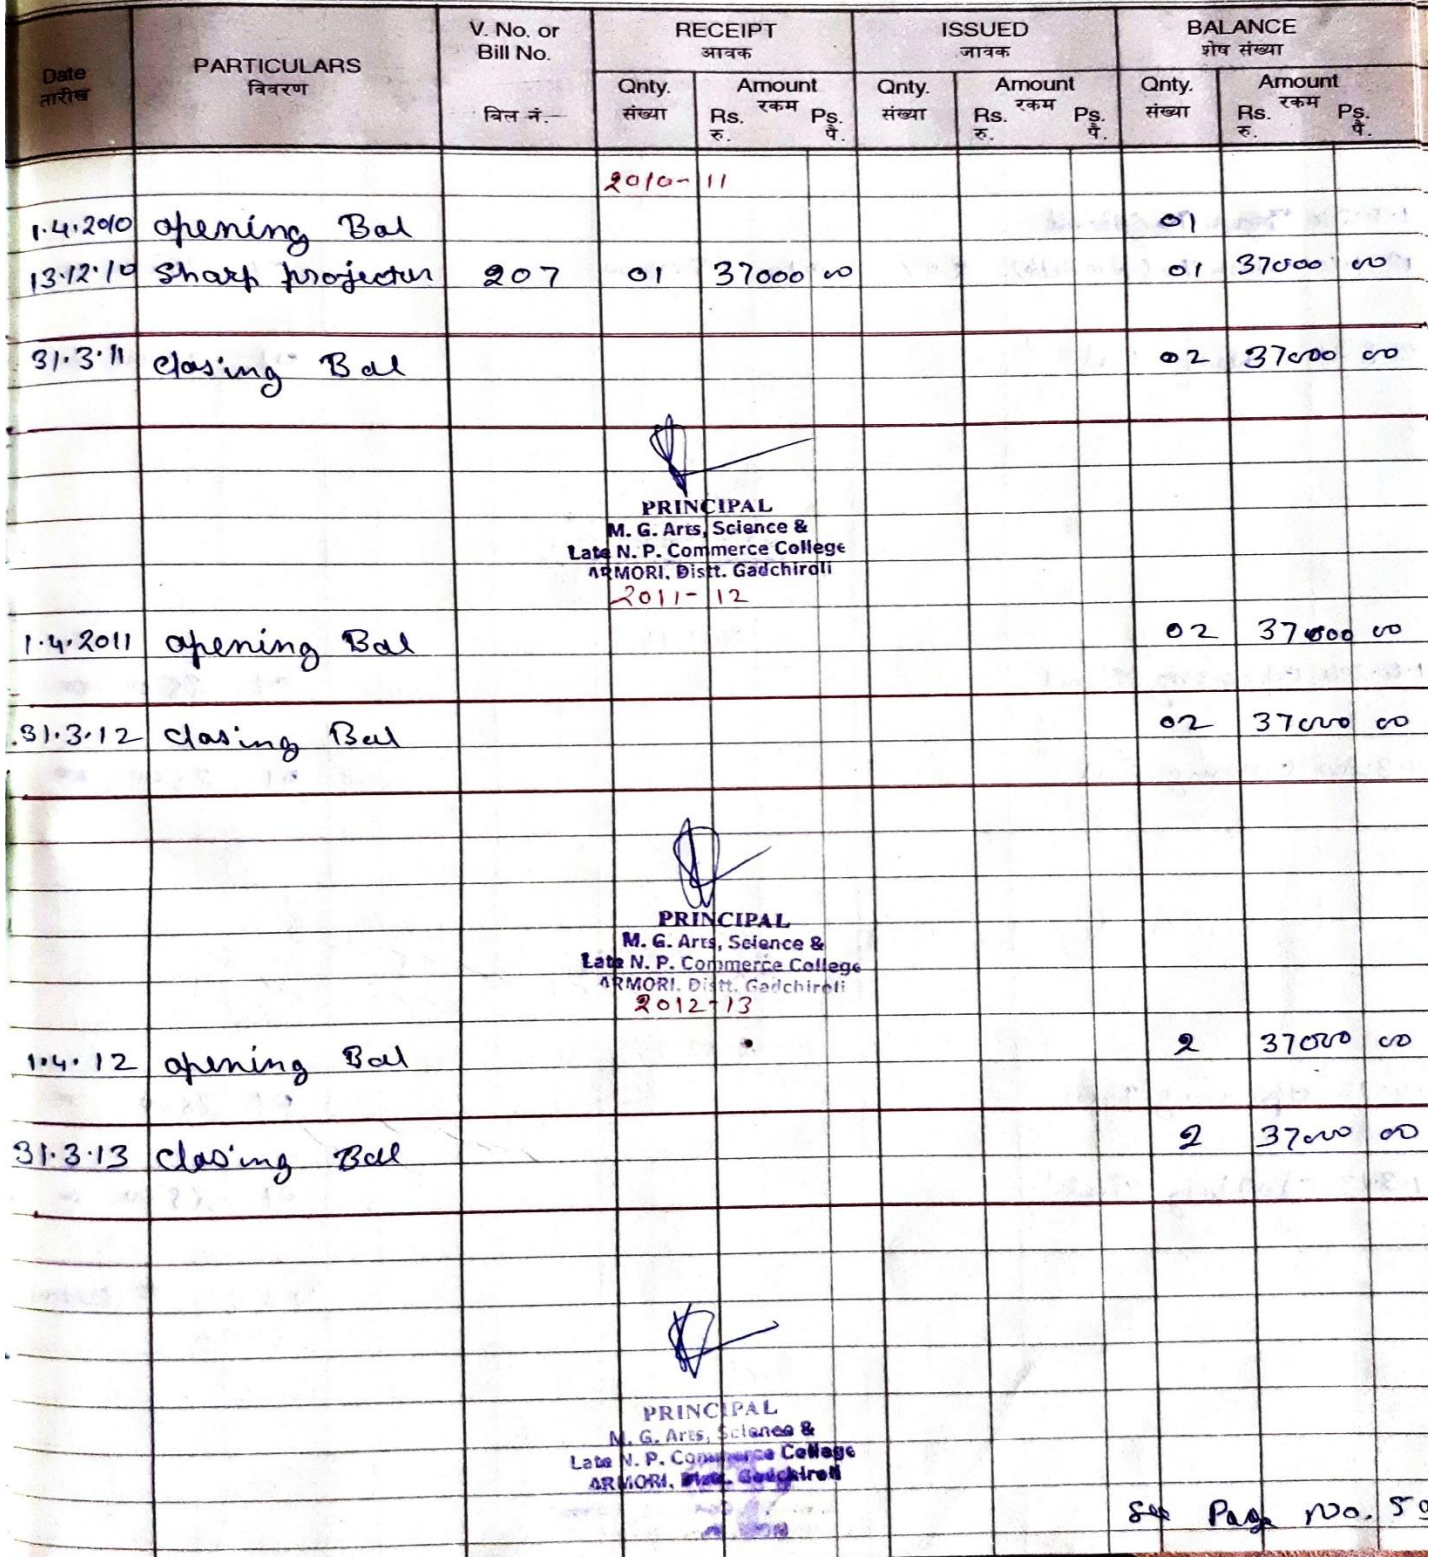 Date तारीख PARTICULARS विवरण V. No. or Bill No. बिल नं. RECEIPT आवक ISSUED जावक BALANCE शेष संख्या
Qnty. संख्या Amount रकम Rs. रु. Ps. पै. Qnty. संख्या Amount रकम Rs. रु. Ps. पै. Qnty. संख्या Amount रकम Rs. रु. Ps. पै.
2010-11
1.4.2010 opening Bal 01
13.12.10 Sharp projector 207 01 37000 00 01 37000 00
31.3.11 closing Bal 02 37000 00
PRINCIPAL
M. G. Arts, Science &
Late N. P. Commerce College
ARMORI, Distt. Gadchiroli
2011-12
1.4.2011 opening Bal 02 37000 00
31.3.12 closing Bal 02 37000 00
PRINCIPAL
M. G. Arts, Science &
Late N. P. Commerce College
ARMORI, Distt. Gadchiroli
2012-13
1.4.12 opening Bal 2 37000 00
31.3.13 closing Bal 2 37000 00
PRINCIPAL
M. G. Arts, Science &
Late N. P. Commerce College
ARMORI, Distt. Gadchiroli
See Page No.